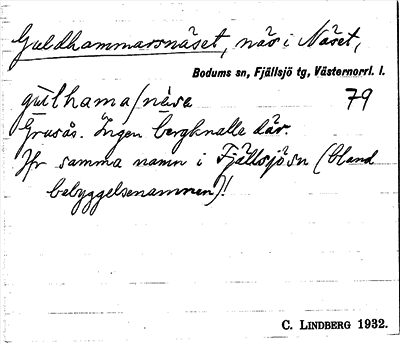 Guldhammarsnäset, näs i Näset,
Bodums sn, Fjällsjö tg, Västernorrl. l.
gu̇lhama/nä̀sə 79
Grusås. Ingen bergknalle där.
Jfr samma namn i Fjällsjö sn (bland
bebyggelsenamnen)!
C. LINDBERG 1932.